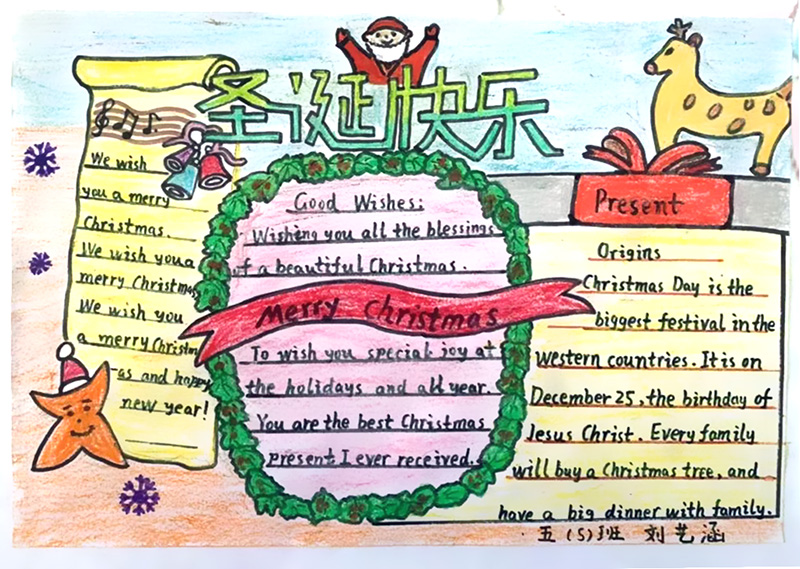 圣诞快乐
We wish
you a merry
Christmas.
We wish you a
merry Christmas
We wish you
a merry Christm
-as and happy
new year!
Good Wishes:
Wishing you all the blessings
of a beautiful Christmas.
Merry Christmas
To wish you special joy at
the holidays and all year.
You are the best Christmas
present I ever received.
Present
Origins
Christmas Day is the
biggest festival in the
western countries. It is on
December 25, the birthday of
Jesus Christ. Every family
will buy a Christmas tree, and
have a big dinner with family.
五(5)班 刘艺涵